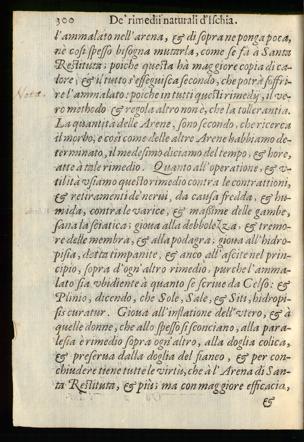 300 De' rimedii naturali d'Ischia.
l'ammalato nell'arena, & di sopra ne ponga poca,
nè così spesso bisogna mutarla, come se fa à Santa
Restituta; poiche questa ha maggiore copia di ca-
lore; & il tutto s'esseguisca secondo, che potrà soffri-
Nota. re l'ammalato: poiche in tutti questi rimedij, il ve-
ro methodo & regola altro non è, che la tollerantia.
La quantità delle Arene, sono secondo, che ricerca
il morbo; e così come delle altre Arene habbiamo de-
terminato, il medesimo diciamo del tempo, & hore,
atte à tale rimedio. Quanto all'operatione, & v-
tilità vsiamo questo rimedio contra le contrattioni,
& retiramenti de' nerui, da causa fredda, & hu-
mida, contra le varice, & massime delle gambe,
sana la sciatica: gioua alla debbolezza, & tremo-
re delle membra, & alla podagra; gioua all'hidro-
pisia, detta timpanite, & anco all'ascite nel prin-
cipio, sopra d'ogn'altro rimedio, purche l'amma-
lato sia vbidiente à quanto se scriue da Celso; &
Plinio, dicendo, che Sole, Sale, & Siti, hidropi-
sis curatur. Gioua all'inflatione dell'vtero, & à
quelle donne, che allo spesso si sconciano, alla para-
lesia è rimedio sopra ogn'altro, alla doglia colica,
& preserua dalla doglia del fianco, & per con-
chiudere tiene tutte le virtù, che à l'Arena di San-
ta Restituta, & più; ma con maggiore efficacia,
&